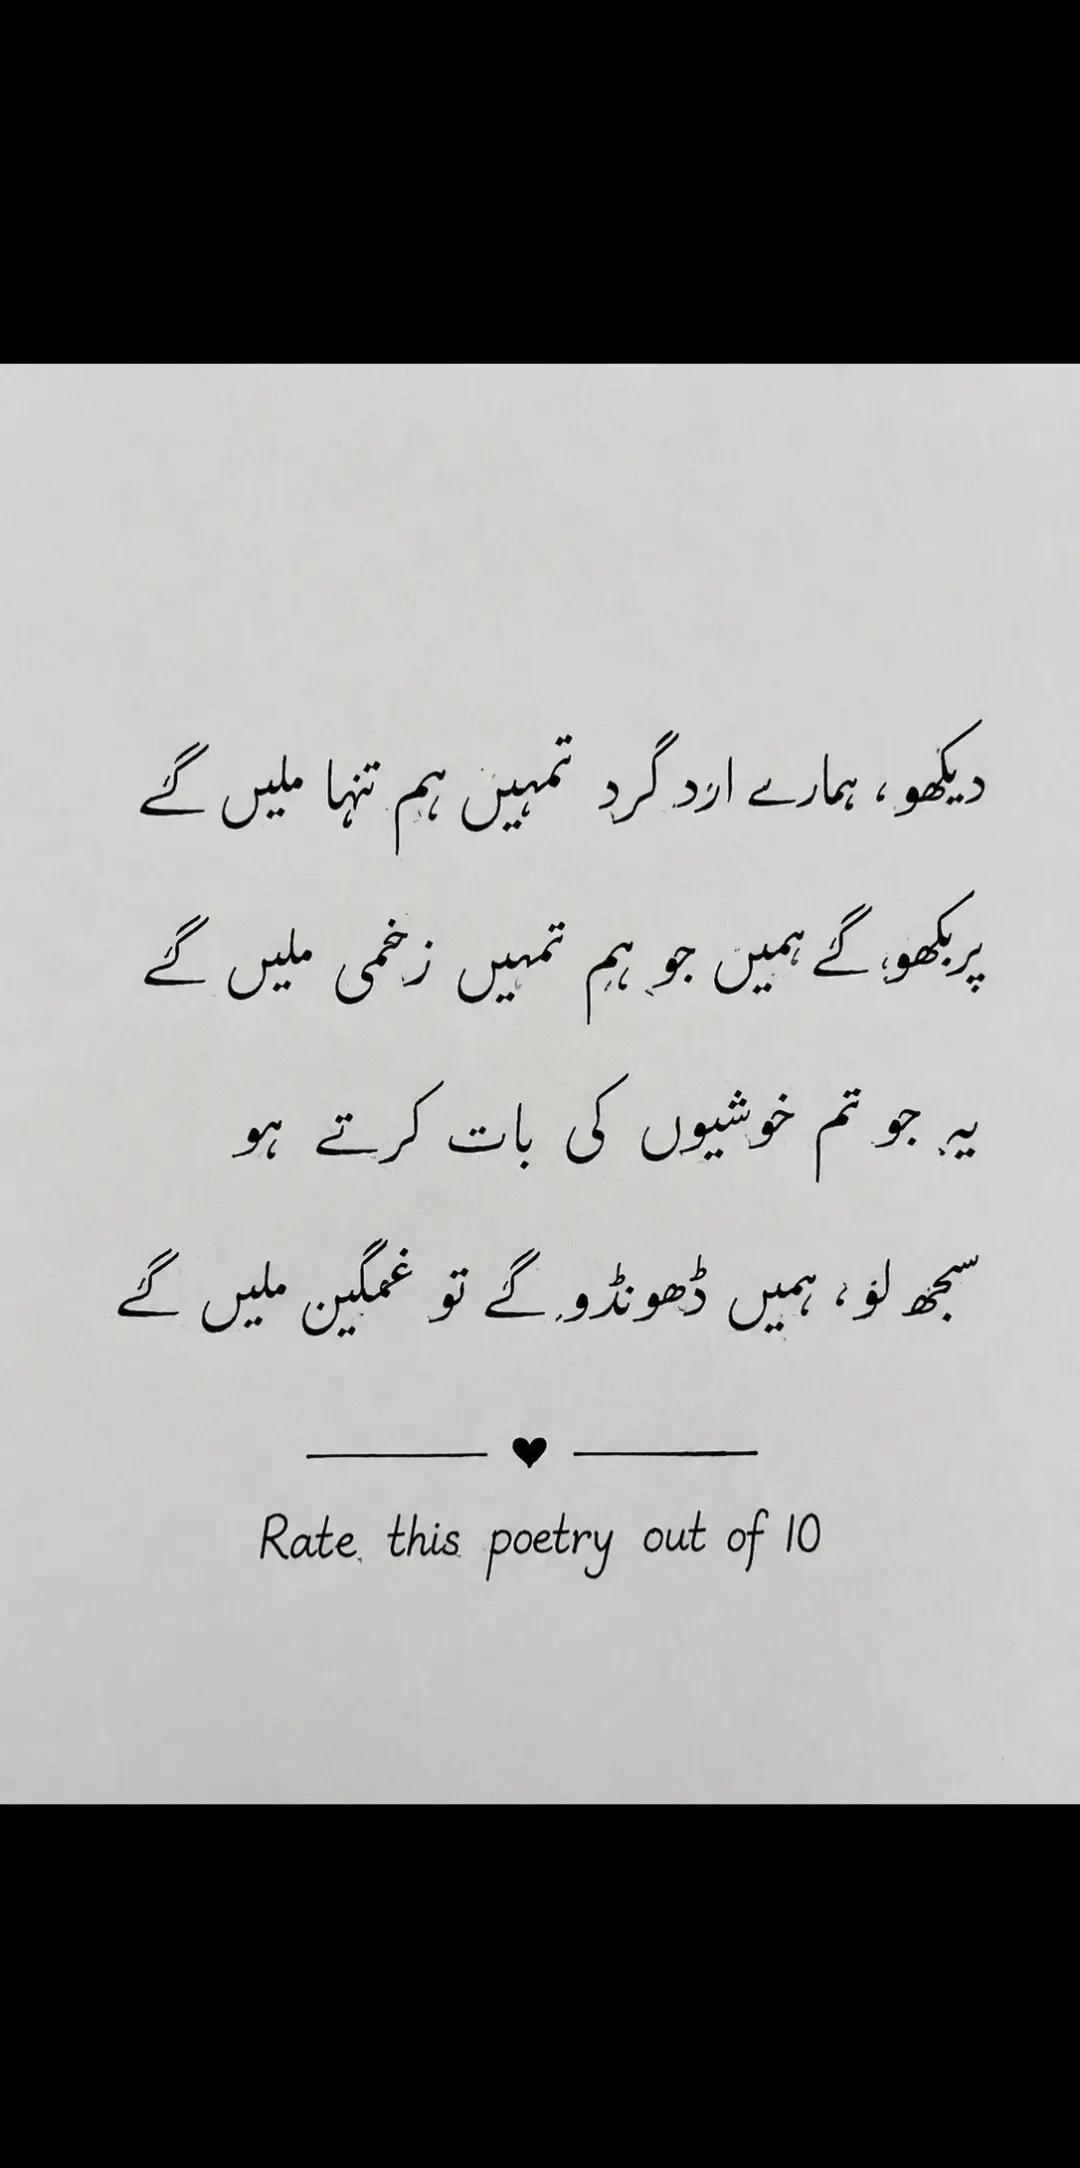 دیکھو، ہمارے ارد گرد تمہیں ہم تنہا ملیں گے
پرکھو گے ہمیں جو ہم تمہیں زخمی ملیں گے
یہ جو تم خوشیوں کی بات کرتے ہو
سمجھ لو، ہمیں ڈھونڈو گے تو غمگین ملیں گے
Rate this poetry out of 10